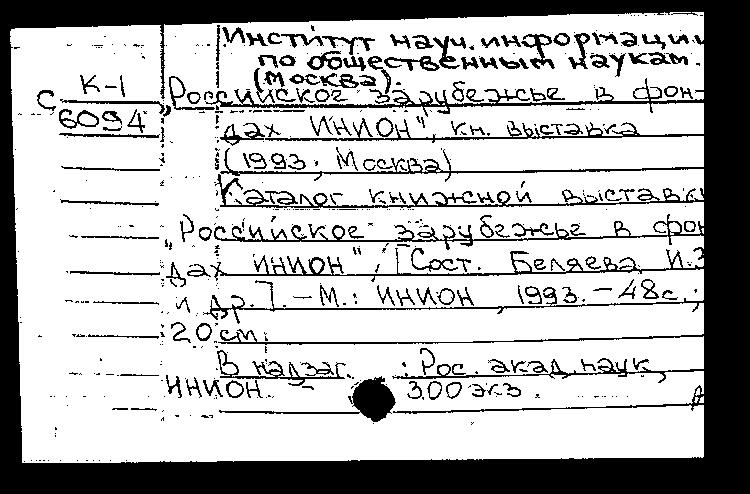 Институт науч. информации
по общественным наукам.
(Москва).
К-1
С 6094
„Российское зарубежье в фон-
дах ИНИОН", кн. выставка
(1993; Москва)
Каталог книжной выставки
„Российское зарубежье в фон
дах ИНИОН", [Сост. Беляева И.З
и др.]. - М.: ИНИОН, 1993. - 48с.;
20 см.
В надзаг.: Рос. акад. наук,
ИНИОН. - 300 экз.